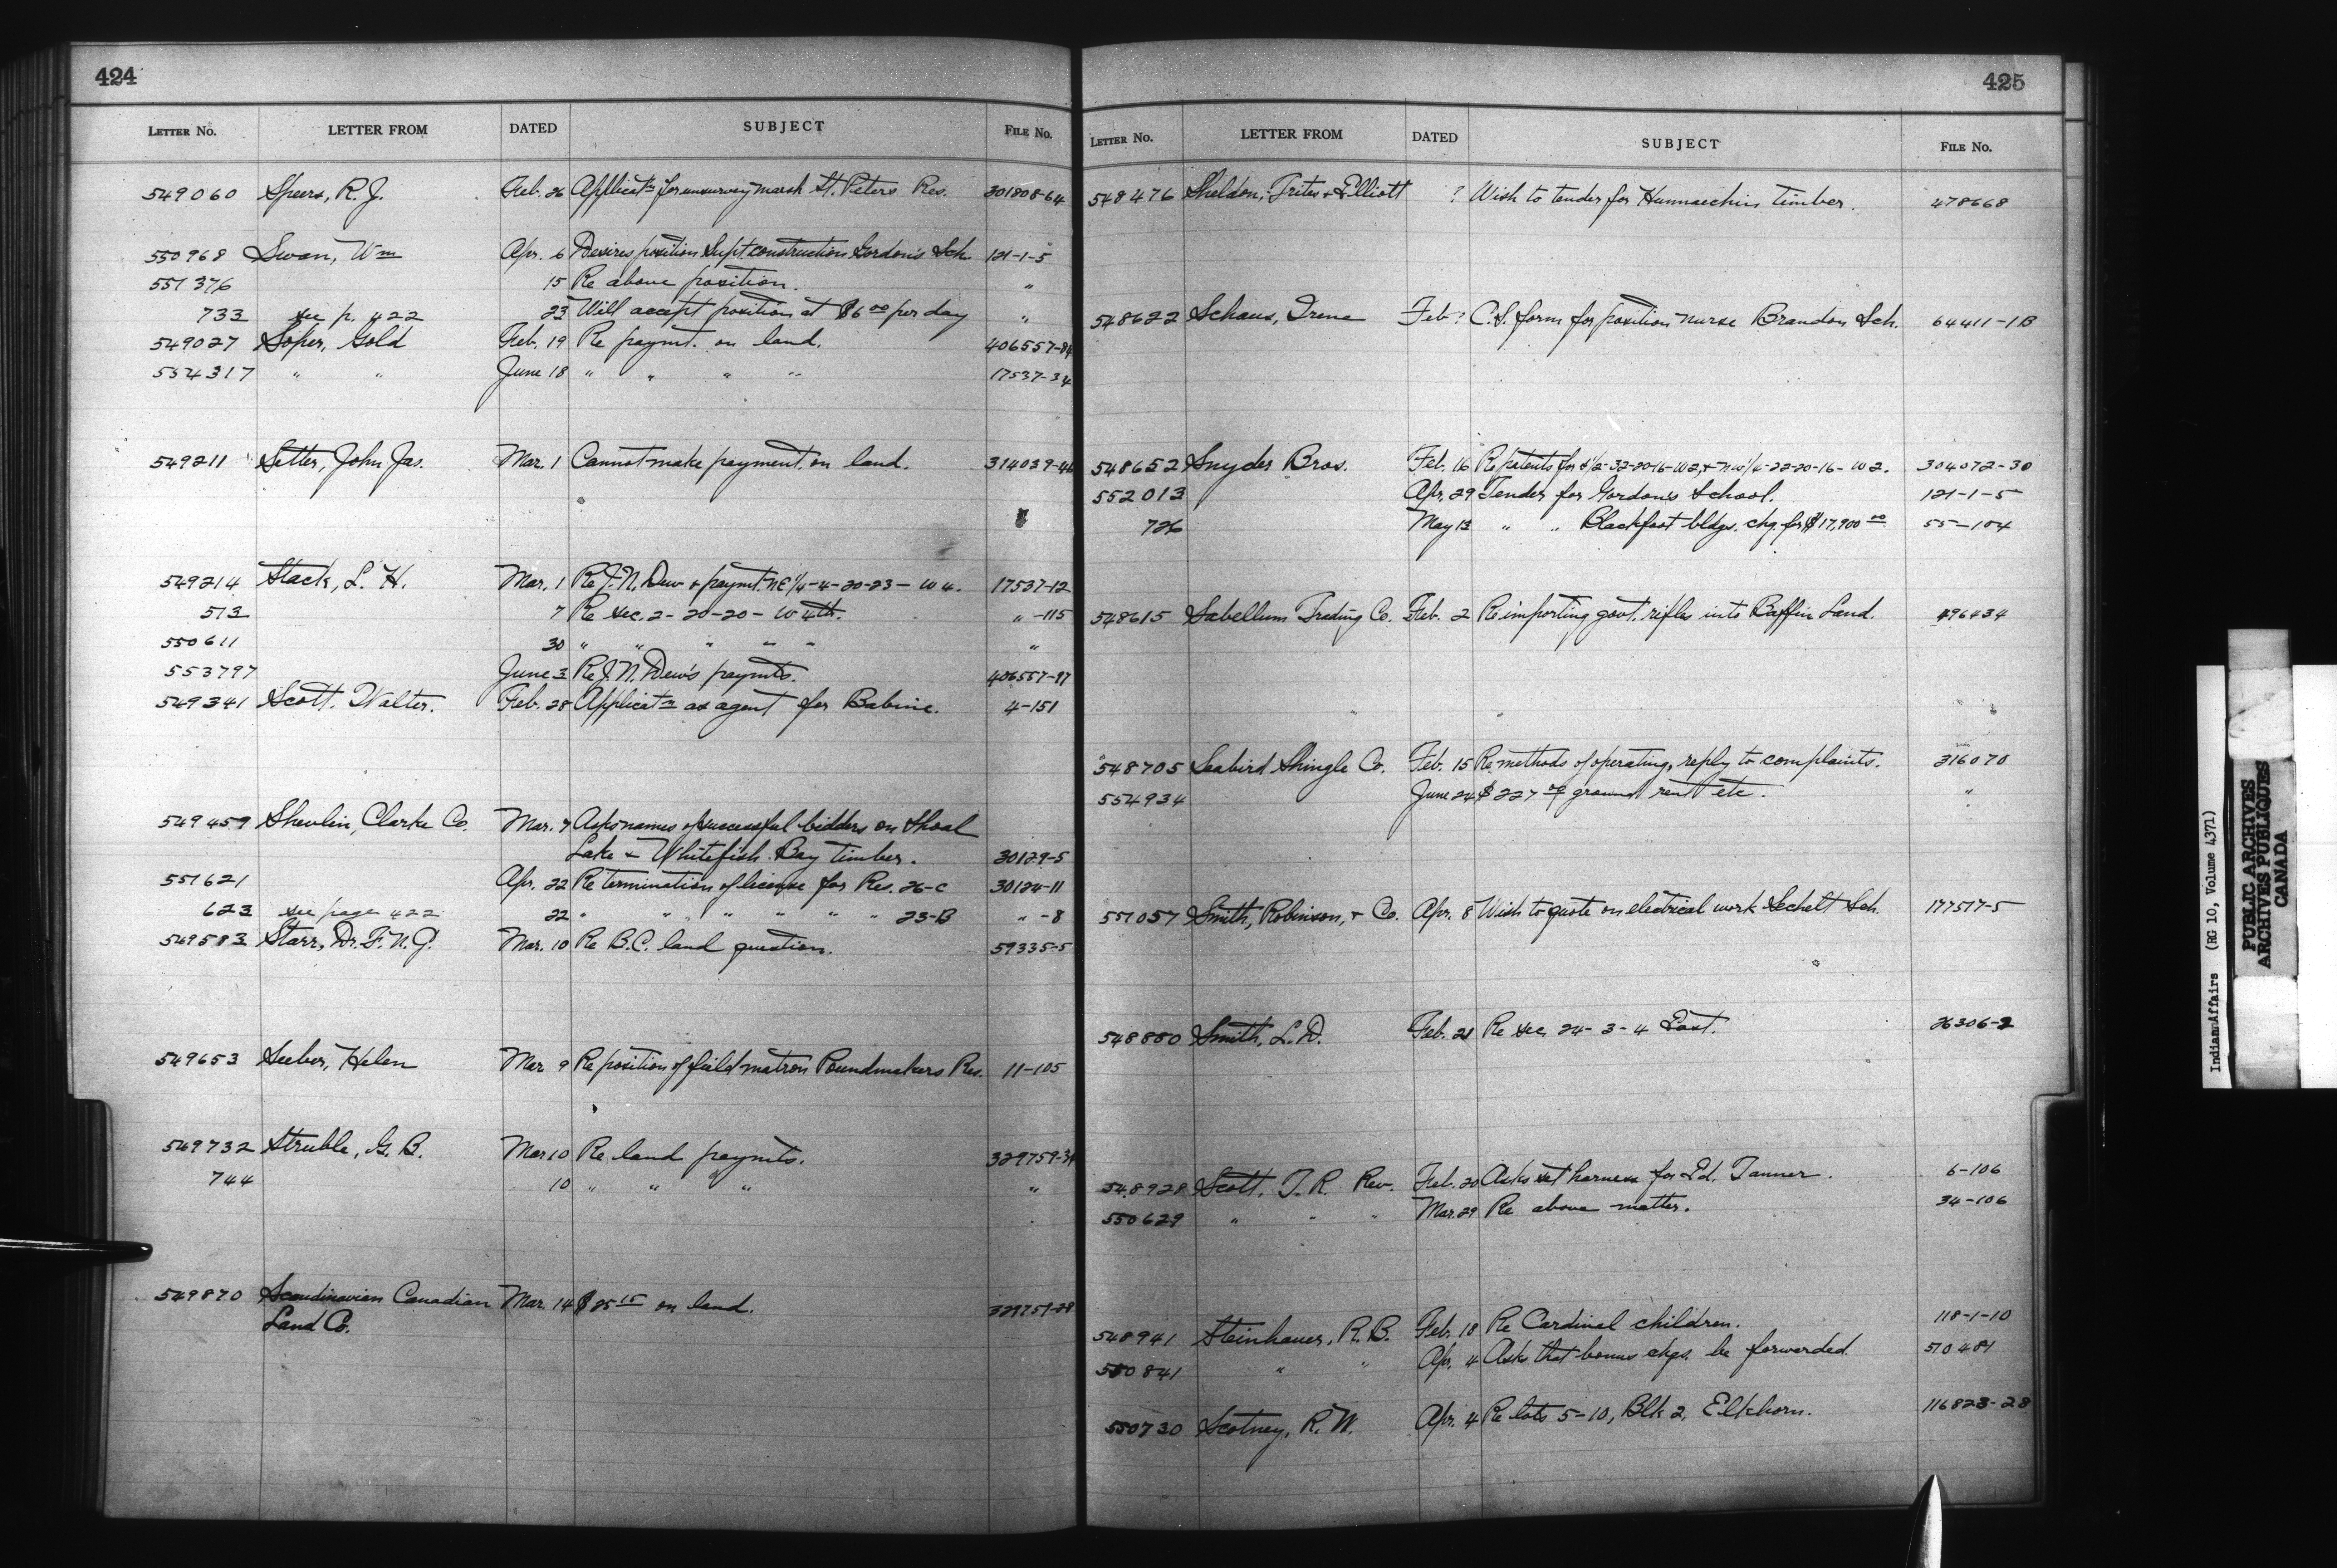 424
LETTER No. LETTER FROM DATED SUBJECT FILE No.
549060 Speers, R. J. Feb. 26 Applicatn for unsurvey marsh St. Peters Res. 301808-64
550968 Swan, Wm Apr. 6 Desires position Supt. construction Gordon's Sch. 121-1-5
551376 15 Re above position. "
733 see p. 422 23 Will accept position at $6 00 per day "
549027 Soper, Gold Feb. 19 Re paymt. on land. 406557-84
554317 " " June 18 " " " " 17537-34
549211 Setter, John Jas. Mar. 1 Cannot make payment on land. 314039-44
549214 Stack, L. H. Mar. 1 Re J. N. Dew & paymt. NE 1/4-4-20-23-W4. 17537-12
513 7 Re sec. 2-20-20-W 4th. " -115
550611 30 " " " " " "
553797 June 3 Re J. N. Dew's paymts. 406557-97
549341 Scott, Walter. Feb. 28 Applicatn as agent for Babine. 4-151
549459 Shevlin, Clarke Co. Mar. 7 Asks names of successful bidders on Shoal
Lake & Whitefish Bay timber. 30129-5
551621 Apr. 22 Re termination of license for Res. 26-C 30124-11
623 see page 422 22 " " " " " " 23-B " -8
549583 Starr, Dr. F. N. G. Mar. 10 Re B.C. land question. 59335-5
549653 Seeber, Helen Mar. 9 Re position of field matron Poundmakers Res. 11-105
549732 Struble, G. B. Mar 10 Re land paymts. 329759-34
744 10 " " " "
549870 Scandinavian Canadian Mar. 14 $ 25 15 on land. 329759-28
Land Co.
425
LETTER No. LETTER FROM DATED SUBJECT FILE No.
548476 Sheldon, Trites & Elliott ? Wish to tender for Hunnaechin timber. 478668
548622 Schaus, Irene Feb ? C.S. form for position nurse Brandon Sch. 64411-1B
548652 Snyder Bros. Feb. 16 Re patents for S 1/2-32-20-16-W2, & NW 1/4-22-20-16-W2. 304072-30
552013 Apr. 29 Tender for Gordon's School. 121-1-5
726 May 13 " " Blackfoot bldgs. chq. for $17,900 00 55-104
548615 Sabellum Trading Co. Feb. 2 Re importing govt. rifles into Baffin Land. 496434
548705 Seabird Shingle Co. Feb. 15 Re methods of operating, reply to complaints. 316070
554934 June 24 $ 227 ground rent etc. "
551057 Smith, Robinson, & Co. Apr. 8 Wish to quote on electrical work Sechelt Sch. 177517-5
548880 Smith, L. D. Feb. 21 Re sec. 24-3-4 East. 26306-2
548928 Scott, T. R. Rev. Feb. 20 Asks set harness for Ed. Tanner. 6-106
550629 " " " Mar. 29 Re above matter. 34-106
548941 Steinhauer, R. B. Feb. 18 Re Cardinal children. 118-1-10
550841 " " Apr. 4 Asks that bonus chqs. be forwarded. 510481
550730 Scotney, R. W. Apr. 4 Re lots 5-10, Blk 2, Elkhorn. 116823-28
Indian Affairs (RG 10, Volume 4371)
PUBLIC ARCHIVES
ARCHIVES PUBLIQUES
CANADA